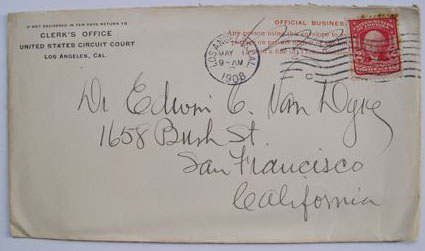 IF NOT DELIVERED IN TEN DAYS RETURN TO
CLERK'S OFFICE
UNITED STATES CIRCUIT COURT
LOS ANGELES, CAL.
OFFICIAL BUSINES
Any person using this envelope to
payment on private
to a fine of
LOS ANGELES, CAL.
MAY
9-AM
1908
C
Dr Edwin C. Van Dyke
1658 Bush St.
San Francisco
California